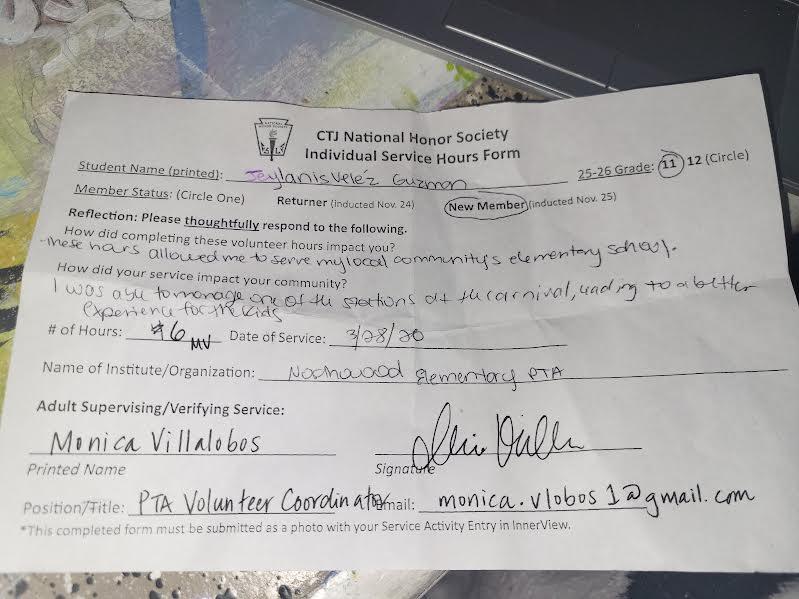 NATIONAL HONOR SOCIETY
CTJ National Honor Society
Individual Service Hours Form
Student Name (printed): Jaylanis Veléz Guzman 25-26 Grade: 11 12 (Circle)
Member Status: (Circle One) Returner (inducted Nov. 24) New Member (inducted Nov. 25)
Reflection: Please thoughtfully respond to the following.
How did completing these volunteer hours impact you?
These hours allowed me to serve my local community's elementary school.
How did your service impact your community?
I was able to manage one of the stations at the carnival, leading to a better
experience for the kids
# of Hours: 6 MV Date of Service: 3/28/20
Name of Institute/Organization: Elementary PTA
Adult Supervising/Verifying Service:
Monica Villalobos
Printed Name Signature
Position/Title: PTA Volunteer Coordinator Email: monica.vlobos1@gmail.com
*This completed form must be submitted as a photo with your Service Activity Entry in InnerView.